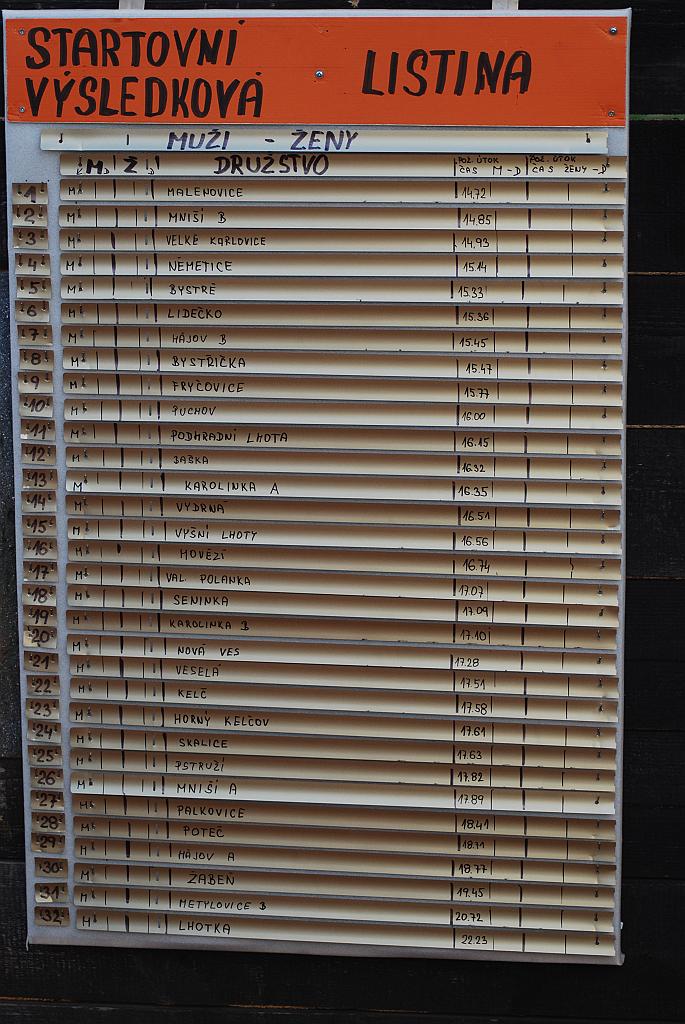 STARTOVNÍ
VÝSLEDKOVÁ LISTINA
MUŽI - ŽENY
M Ž DRUŽSTVO POŽ. ÚTOK ČAS M-D POŽ. ÚTOK ČAS ŽENY-D
1 M MALENOVICE 14,72
2 M MNIŠÍ B 14,85
3 M VELKÉ KARLOVICE 14,93
4 M NĚMETICE 15.14
5 M BYSTRÉ 15.33
6 M LIDEČKO 15.36
7 M HÁJOV B 15.45
8 M BYSTŘIČKA 15.47
9 M FRYČOVICE 15.77
10 M PUCHOV 16.00
11 M PODHRADNÍ LHOTA 16.15
12 M BAŠKA 16.32
13 M KAROLINKA A 16.35
14 M VYDRNÁ 16.51
15 M VYŠNÍ LHOTY 16.56
16 M HOVĚZÍ 16.74
17 M VAL. POLANKA 17.07
18 M SENINKA 17.09
19 M KAROLINKA B 17.10
20 M NOVÁ VES 17.28
21 M VESELÁ 17.51
22 M KELČ 17.58
23 M HORNÝ KELČOV 17.61
24 M SKALICE 17.63
25 M PSTRUŽÍ 17.82
26 M MNIŠÍ A 17.89
27 M PALKOVICE 18.41
28 M POTEČ
29 M HÁJOV A 18.77
30 M ŽABEŇ 19.45
31 M METYLOVICE B 20.72
32 M LHOTKA 22.23